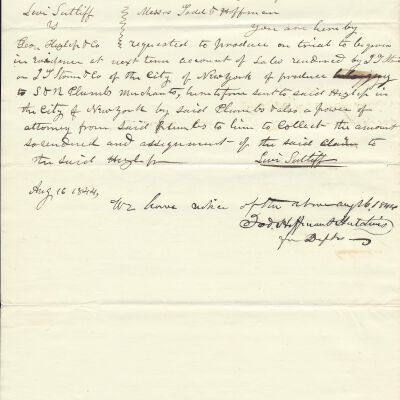 Levi Sutliff } Messrs Todd & Hoffman
vs } You are hereby
Geo. Hezlep & Co } requested to produce on trial to be given
in evidence at next term account of sales rendered by J T
or J T & Co of the City of New York of produce belonging
to S & N Plumb Merchants, heretofore sent to said Hezlep in
the City of New York by said Plumbs & also a power of
attorney from said Plumbs to him to collect the amount
so rendered and assignment of the said Claim to
the said Hezlep Levi Sutliff
Aug 16 1844,
We have notice of the above aug 16, 1844
Tod, Hoffman & Hutchins
for Defts